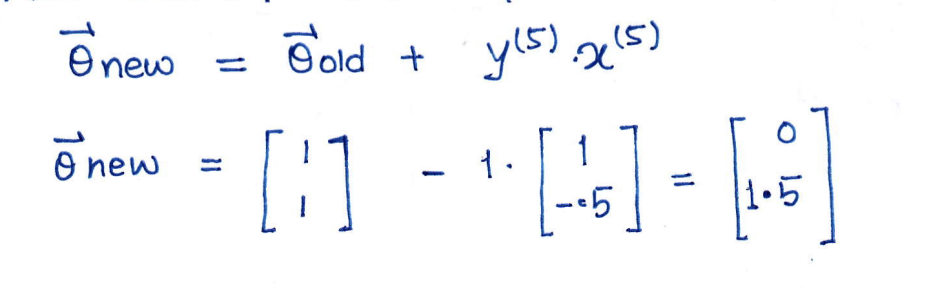 θ⃗new = θ⃗old + y⁽⁵⁾.x⁽⁵⁾
θ⃗new = [1 1] - 1. [1 -.5] = [0 1.5]